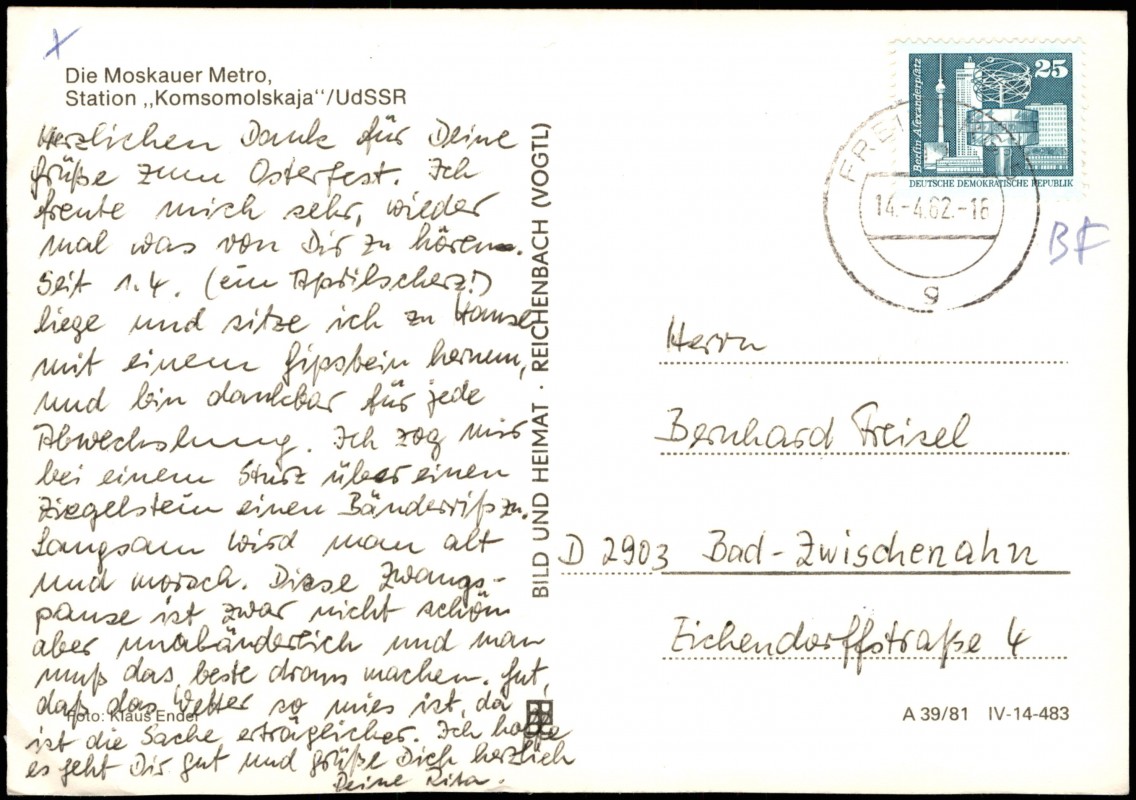 Die Moskauer Metro,
Station „Komsomolskaja"/UdSSR
Herzlichen Dank für Deine
Grüße zum Osterfest. Ich
freute mich sehr, wieder
mal was von Dir zu hören.
Seit 1.4. (ein Aprilscherz!)
liege und sitze ich zu Hause
mit einem Gipsbein herum,
und bin dankbar für jede
Abwechslung. Ich zog mir
bei einem Sturz über einen
Ziegelstein einen Bänderriß zu.
Langsam wird man alt
und morsch. Diese Zwangs-
pause ist zwar nicht schön
aber unabänderlich und man
muß das beste draus machen. Gut,
daß das Wetter so mies ist, da
ist die Sache erträglicher. Ich hoffe
es geht Dir gut und grüße Dich herzlich
Deine Rita.
Foto: Klaus Ender
BILD UND HEIMAT · REICHENBACH (VOGTL)
25
Berlin Alexanderplatz
DEUTSCHE DEMOKRATISCHE REPUBLIK
14.-4.82.-16
g
BF
Herrn
Bernhard Freisel
D 2903 Bad-Zwischenahn
Eichendorffstraße 4
A 39/81 IV-14-483